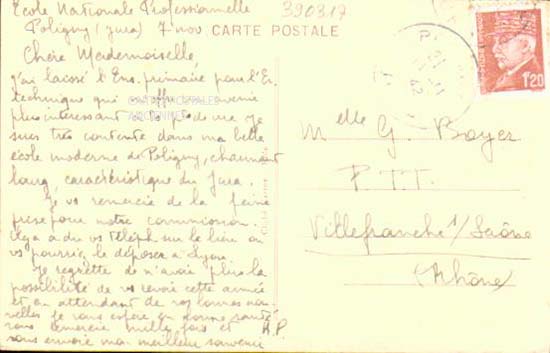 Ecole Nationale Professionnelle
Poligny (Jura) 7 nov
390317
CARTE POSTALE
Chère Mademoiselle,
J'ai laissé l'Ens. primaire pour l'Es.
technique qui offre avenir
plus intéressant
suis très contente dans ma belle
école moderne de Poligny, charmant
bourg, caractéristique du Jura.
Je vs remercie de la peine
prise pour notre commission.
à dû vs téléph. sur le lieu où
vs pourriez le déposer à Lyon.
Je regrette de n'avoir plus la
possibilité de vs revoir cette année
et en attendant de vos bonnes nou-
velles je vous espère en bonne santé
vous remercie mille fois et
vous envoie mon meilleur souvenir
R.P
1F20
Melle G. Boyer
P.T.T.
Villefranche s/Saône
(Rhône)